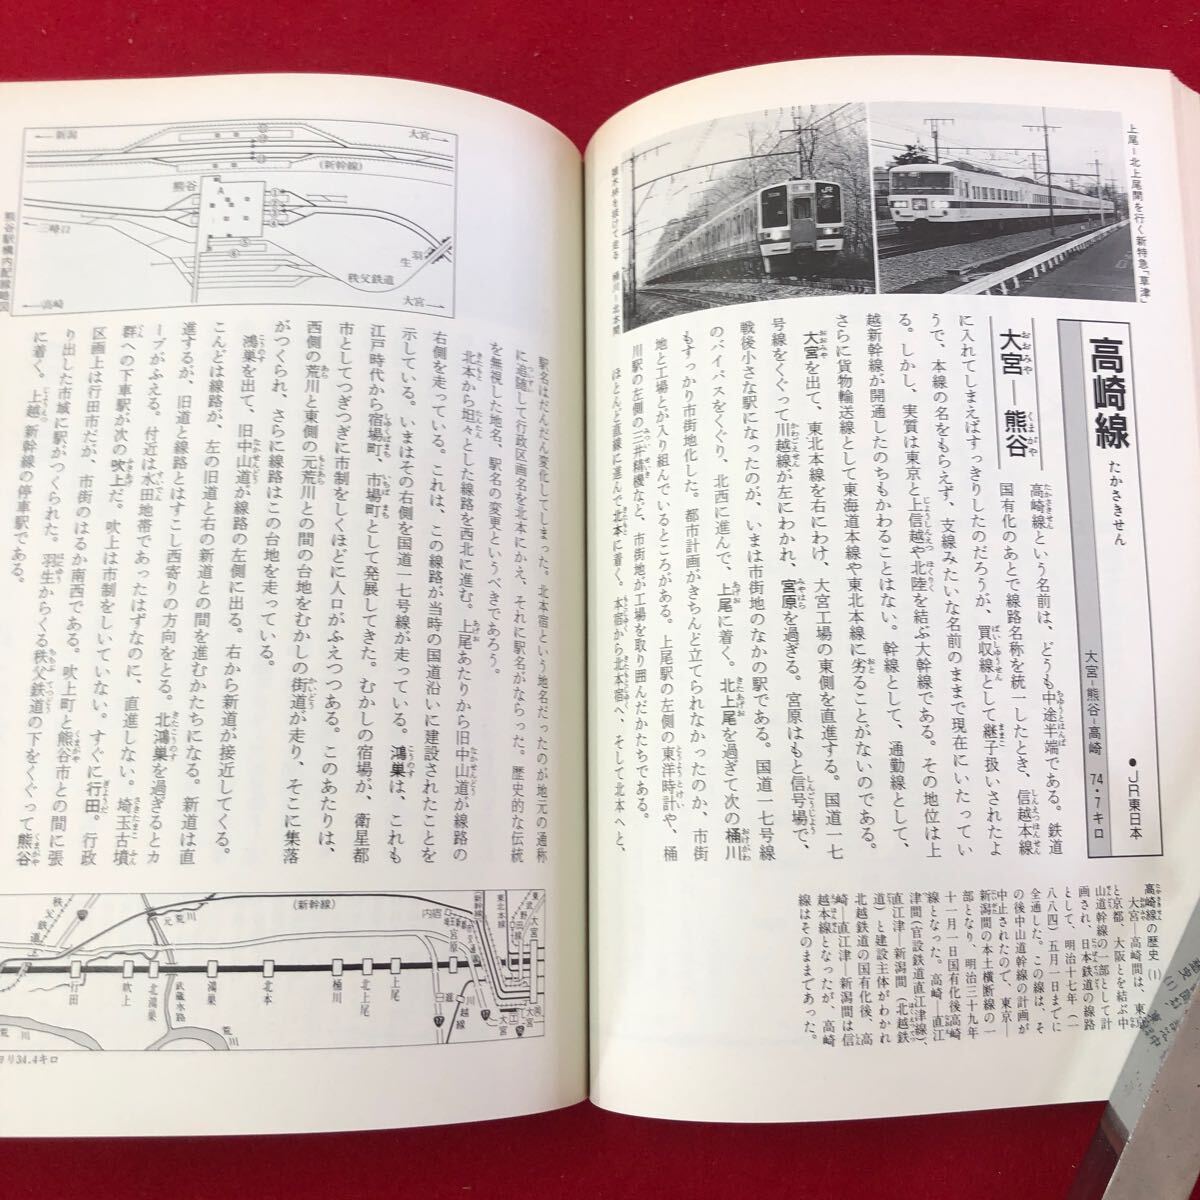 高崎線
たかさきせん
●JR東日本
大宮―熊谷―高崎　74・7キロ
上尾―北上尾間を行く新特急「草津」
雑木林を抜けて走る　桶川―北本間
大宮―熊谷
高崎線という名前は、どうも中途半端である。鉄道
国有化のあとで線路名称を統一したとき、信越本線
に入れてしまえばすっきりしたのだろうが、買収線として継子扱いされたよ
うで、本線の名をもらえず、支線みたいな名前のままで現在にいたってい
る。しかし、実質は東京と上信越や北陸を結ぶ大幹線である。その地位は上
越新幹線が開通したのちもかわることはない。幹線として、通勤線として、
さらに貨物輸送線として東海道本線や東北本線に劣ることがないのである。
大宮を出て、東北本線を右にわけ、大宮工場の東側を直進する。国道一七
号線をくぐって川越線が左にわかれ、宮原を過ぎる。宮原はもと信号場で、
戦後小さな駅になったのが、いまは市街地のなかの駅である。国道一七号線
のバイパスをくぐり、北西に進んで、上尾に着く。北上尾を過ぎて次の桶川
もすっかり市街地化した。都市計画がきちんと立てられなかったのか、市街
地と工場とが入り組んでいるところがある。上尾駅の左側の東洋時計や、桶
川駅の左側の三井精機など、市街地が工場を取り囲んだかたちである。
ほとんど直線に進んで北本に着く。本宿から北本宿へ、そして北本へと、
高崎線の歴史（1）
大宮―高崎間は、東京
と京都、大阪とを結ぶ中
山道幹線の一部として計
画され、日本鉄道の線路
として、明治十七年（一
八八四）五月一日までに
全通した。この線は、そ
の後中山道幹線の計画が
中止されたので、東京―
新潟間の本土横断線の一
部となり、明治三十九年
十一月一日国有化後高崎
線となった。高崎―直江
津間（官設鉄道直江津線）、
直江津―新潟間（北越鉄
道）と建設主体がわかれ
北越鉄道の国有化後、高
崎―直江津―新潟間は信
越本線となったが、高崎
線はそのままであった。
駅名はだんだん変化してしまった。北本宿という地名だったのが地元の通称
に追随して行政区画名を北本にかえ、それに駅名がならった。歴史的な伝統
を無視した地名、駅名の変更というべきであろう。
北本から坦々とした線路を西北に進む。上尾あたりから旧中山道が線路の
右側を走っている。これは、この線路が当時の国道沿いに建設されたことを
示している。いまはその右側を国道一七号線が走っている。鴻巣は、これも
江戸時代から宿場町、市場町として発展してきた。むかしの宿場が、衛星都
市としてつぎつぎに市制をしくほどに人口がふえつつある。このあたりは、
西側の荒川と東側の元荒川との間の台地をむかしの街道が走り、そこに集落
がつくられ、さらに線路はこの台地を走っている。
鴻巣を出て、旧中山道が線路の左側に出る。右から新道が接近してくる。
こんどは線路が、左の旧道と右の新道との間を進むかたちになる。新道は直
進するが、旧道と線路とはすこし西寄りの方向をとる。北鴻巣を過ぎるとカ
ーブがふえる。付近は水田地帯であったはずなのに、直進しない。埼玉古墳
群への下車駅が次の吹上だ。吹上は市制をしいていない。すぐに行田。行政
区画上は行田市だが、市街のはるか南西である。吹上町と熊谷市との間に張
り出した市域に駅がつくられた。羽生からくる秩父鉄道の下をくぐって熊谷
に着く。上越新幹線の停車駅である。
熊谷駅構内配線略図
←新潟
大宮→
(新幹線)
熊谷
←三峰口
羽生
秩父鉄道
←高崎
大宮→
(新幹線)
秩父鉄道
元荒川
荒川
武蔵水路
行田
吹上
北鴻巣
鴻巣
北本
桶川
北上尾
上尾
宮原
内宿
川越線
東北本線
東武野田線
大宮
より34.4キロ